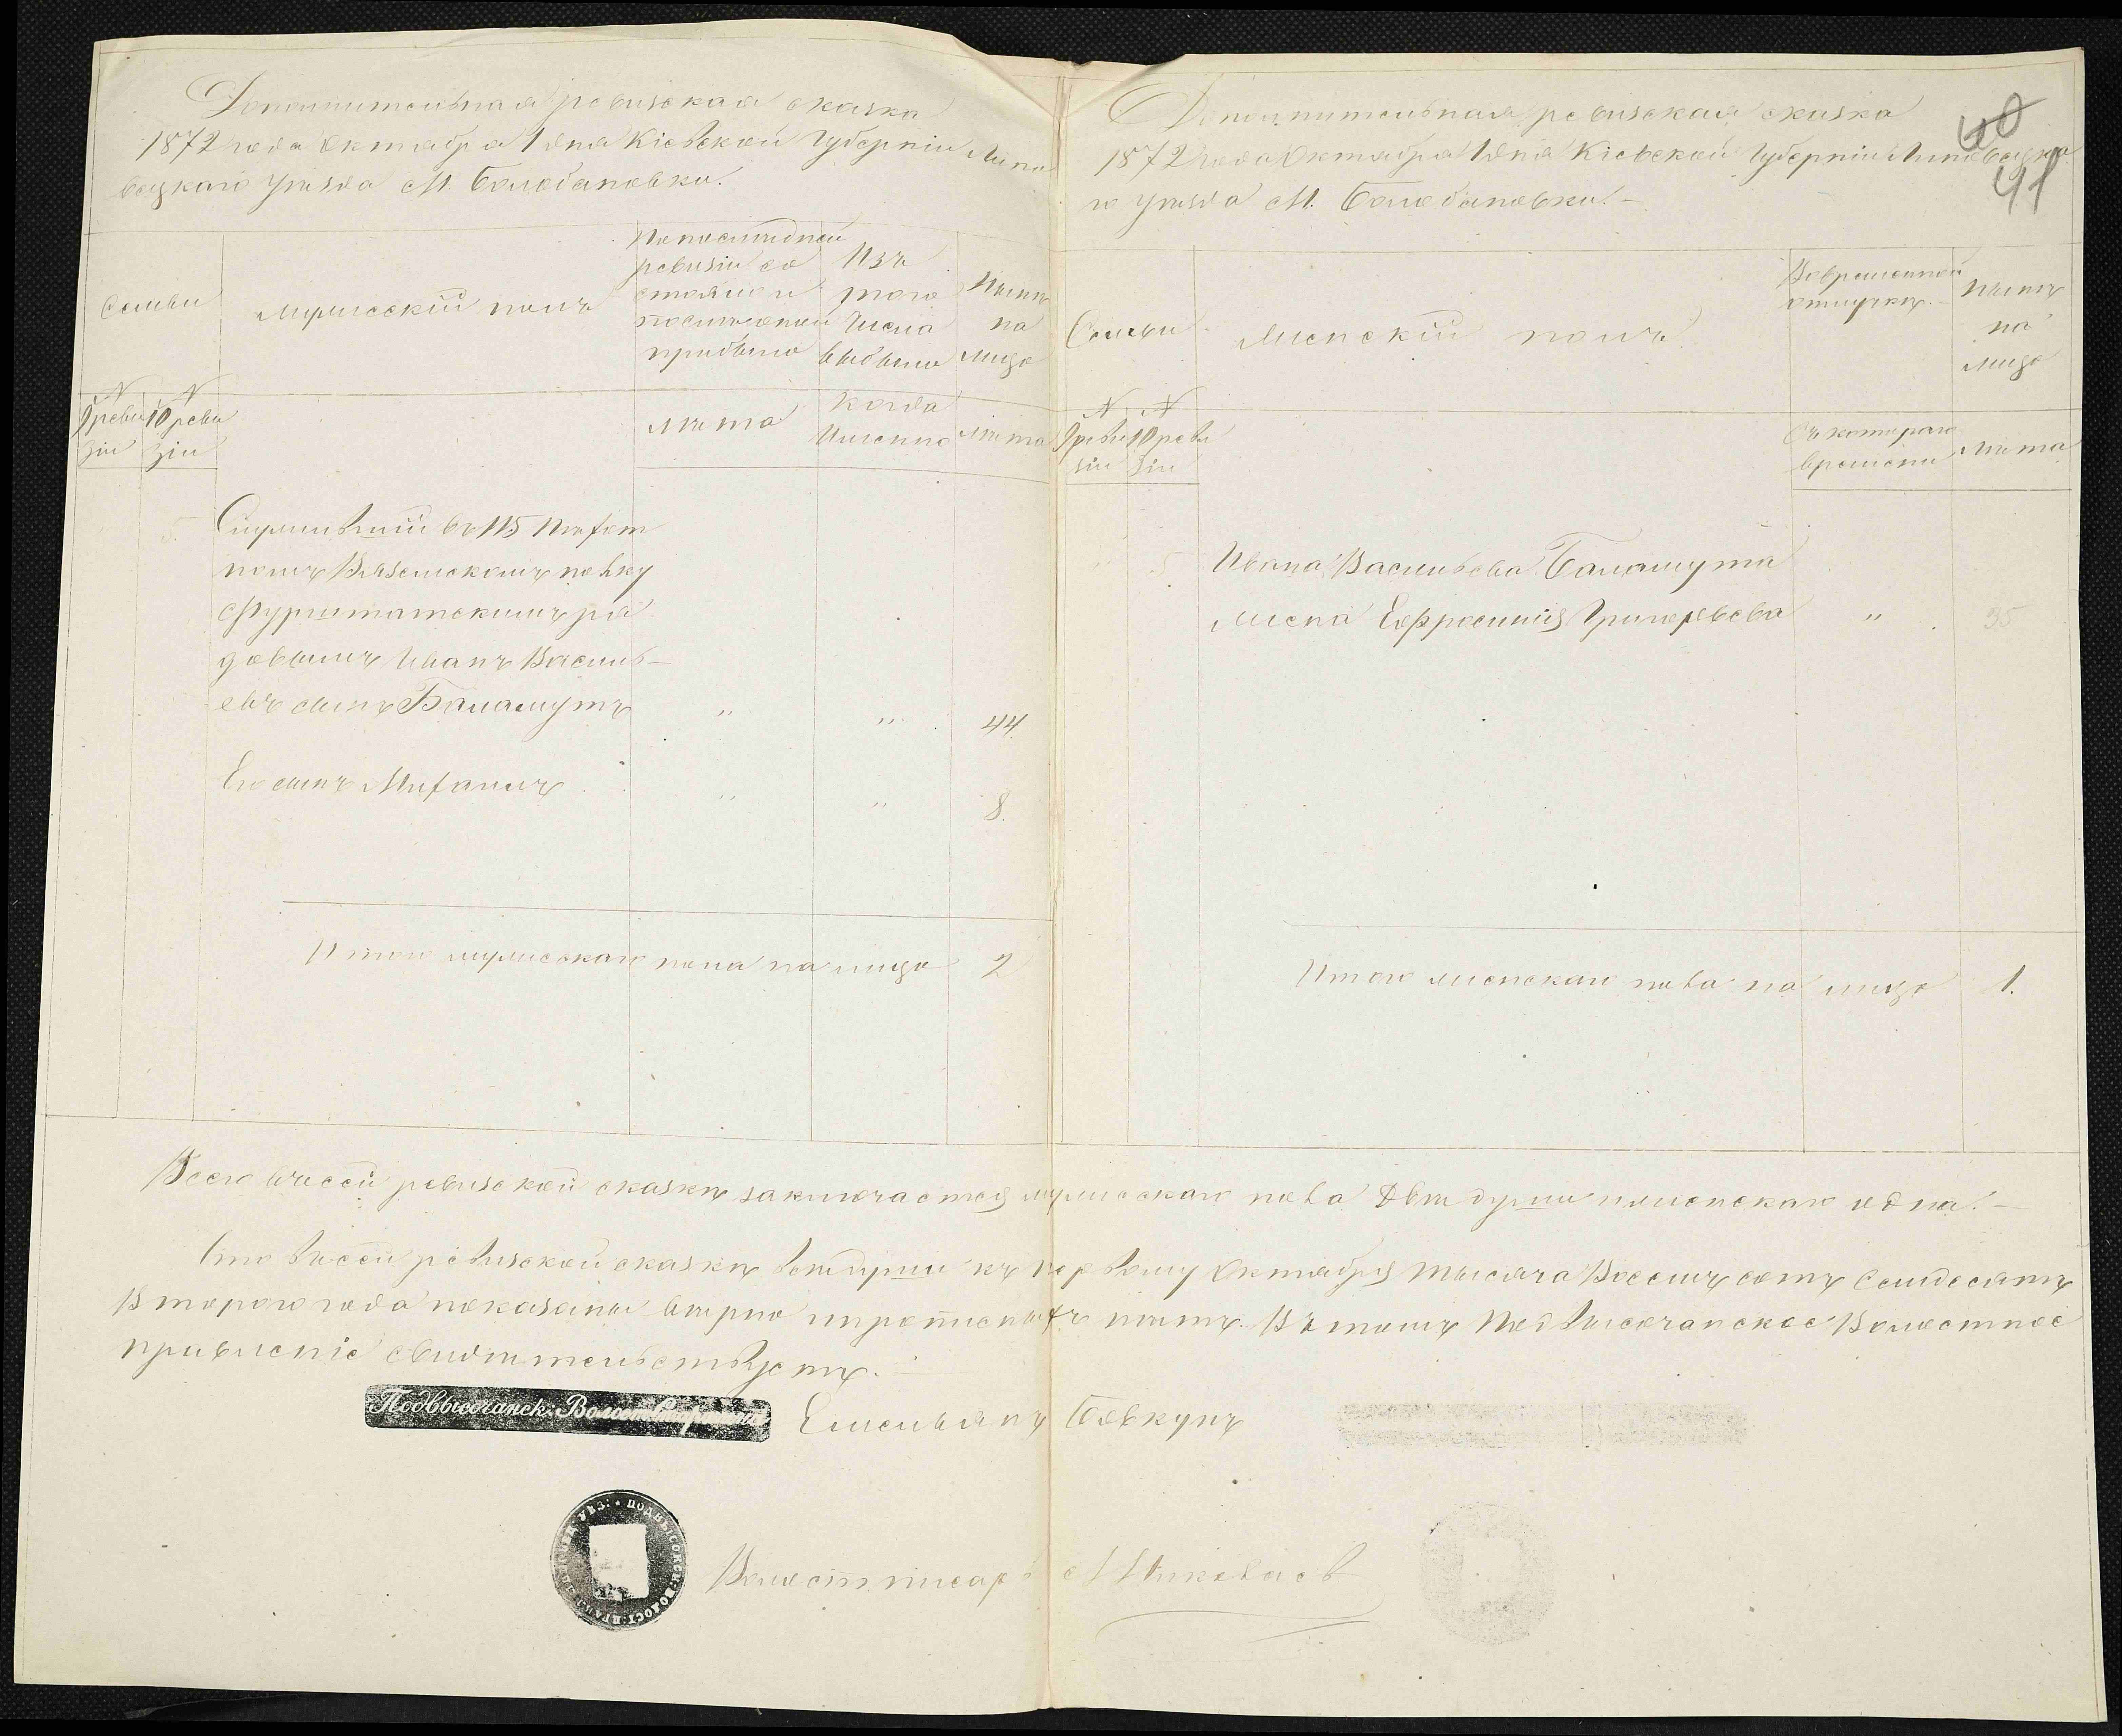 Дополнительная ревизская сказка
1872 года Октября 1 дня Кіевской Губерніи Липо
вецкаго уѣзда М. Болобановки.
Семьи
Мужескій полъ
По послѣдней
ревизіи со
стояло и
послѣ оной
прибыло
Изъ
того
числа
выбыло
Нынѣ
на
лицо
N N
9 реви 10 реви
зіи зіи
Лѣта
Когда
Именно
Лѣта
5. Служившій въ 115 Пѣхот
номъ Вяземскомъ полку
Фурштатскимъ ря
довымъ Иванъ Василь-
евъ сынъ Баламутъ " " 44.
Его сынъ Михаилъ " " 8.
Итого мужескаго пола на лицо 2
Дополнительная ревизская сказка
40
41
1872 года Октября 1 дня Кіевской Губерніи Липовецка
го уѣзда М. Болобановки.-
Семьи
Женскій полъ
Во временной
отлучкѣ.-
Нынѣ
на
лицо
N N
9 реви 10 реви
зіи зіи
Съ котораго
времени
Лѣта
" 5. Ивана Васильева Баламута
жена Ефросинія Григорьева " 35
Итого женскаго пола на лицо 1.
Всего въ сей ревизской сказкѣ заключается мужескаго пола двѣ души и женскаго одна.-
Что въ сей ревизской сказкѣ всѣ души къ первому Октября тысяча Восемъ сотъ Семдесятъ
Второго года показаны вѣрно и прописныхъ нѣтъ. Въ томъ Подвысочанское Волостное
Правленіе свидѣтельствуетъ.-
Подвысочанск. Волост. Старшина Емельянъ Бовкунъ
ПОДВЫСОЦК. ВОЛОСТ. ПРАВЛ. УѢЗ.
Волост. писарь